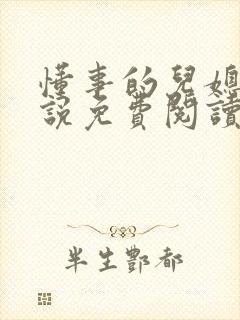 懂事的兒媳
說免費閱讀
半生酆都